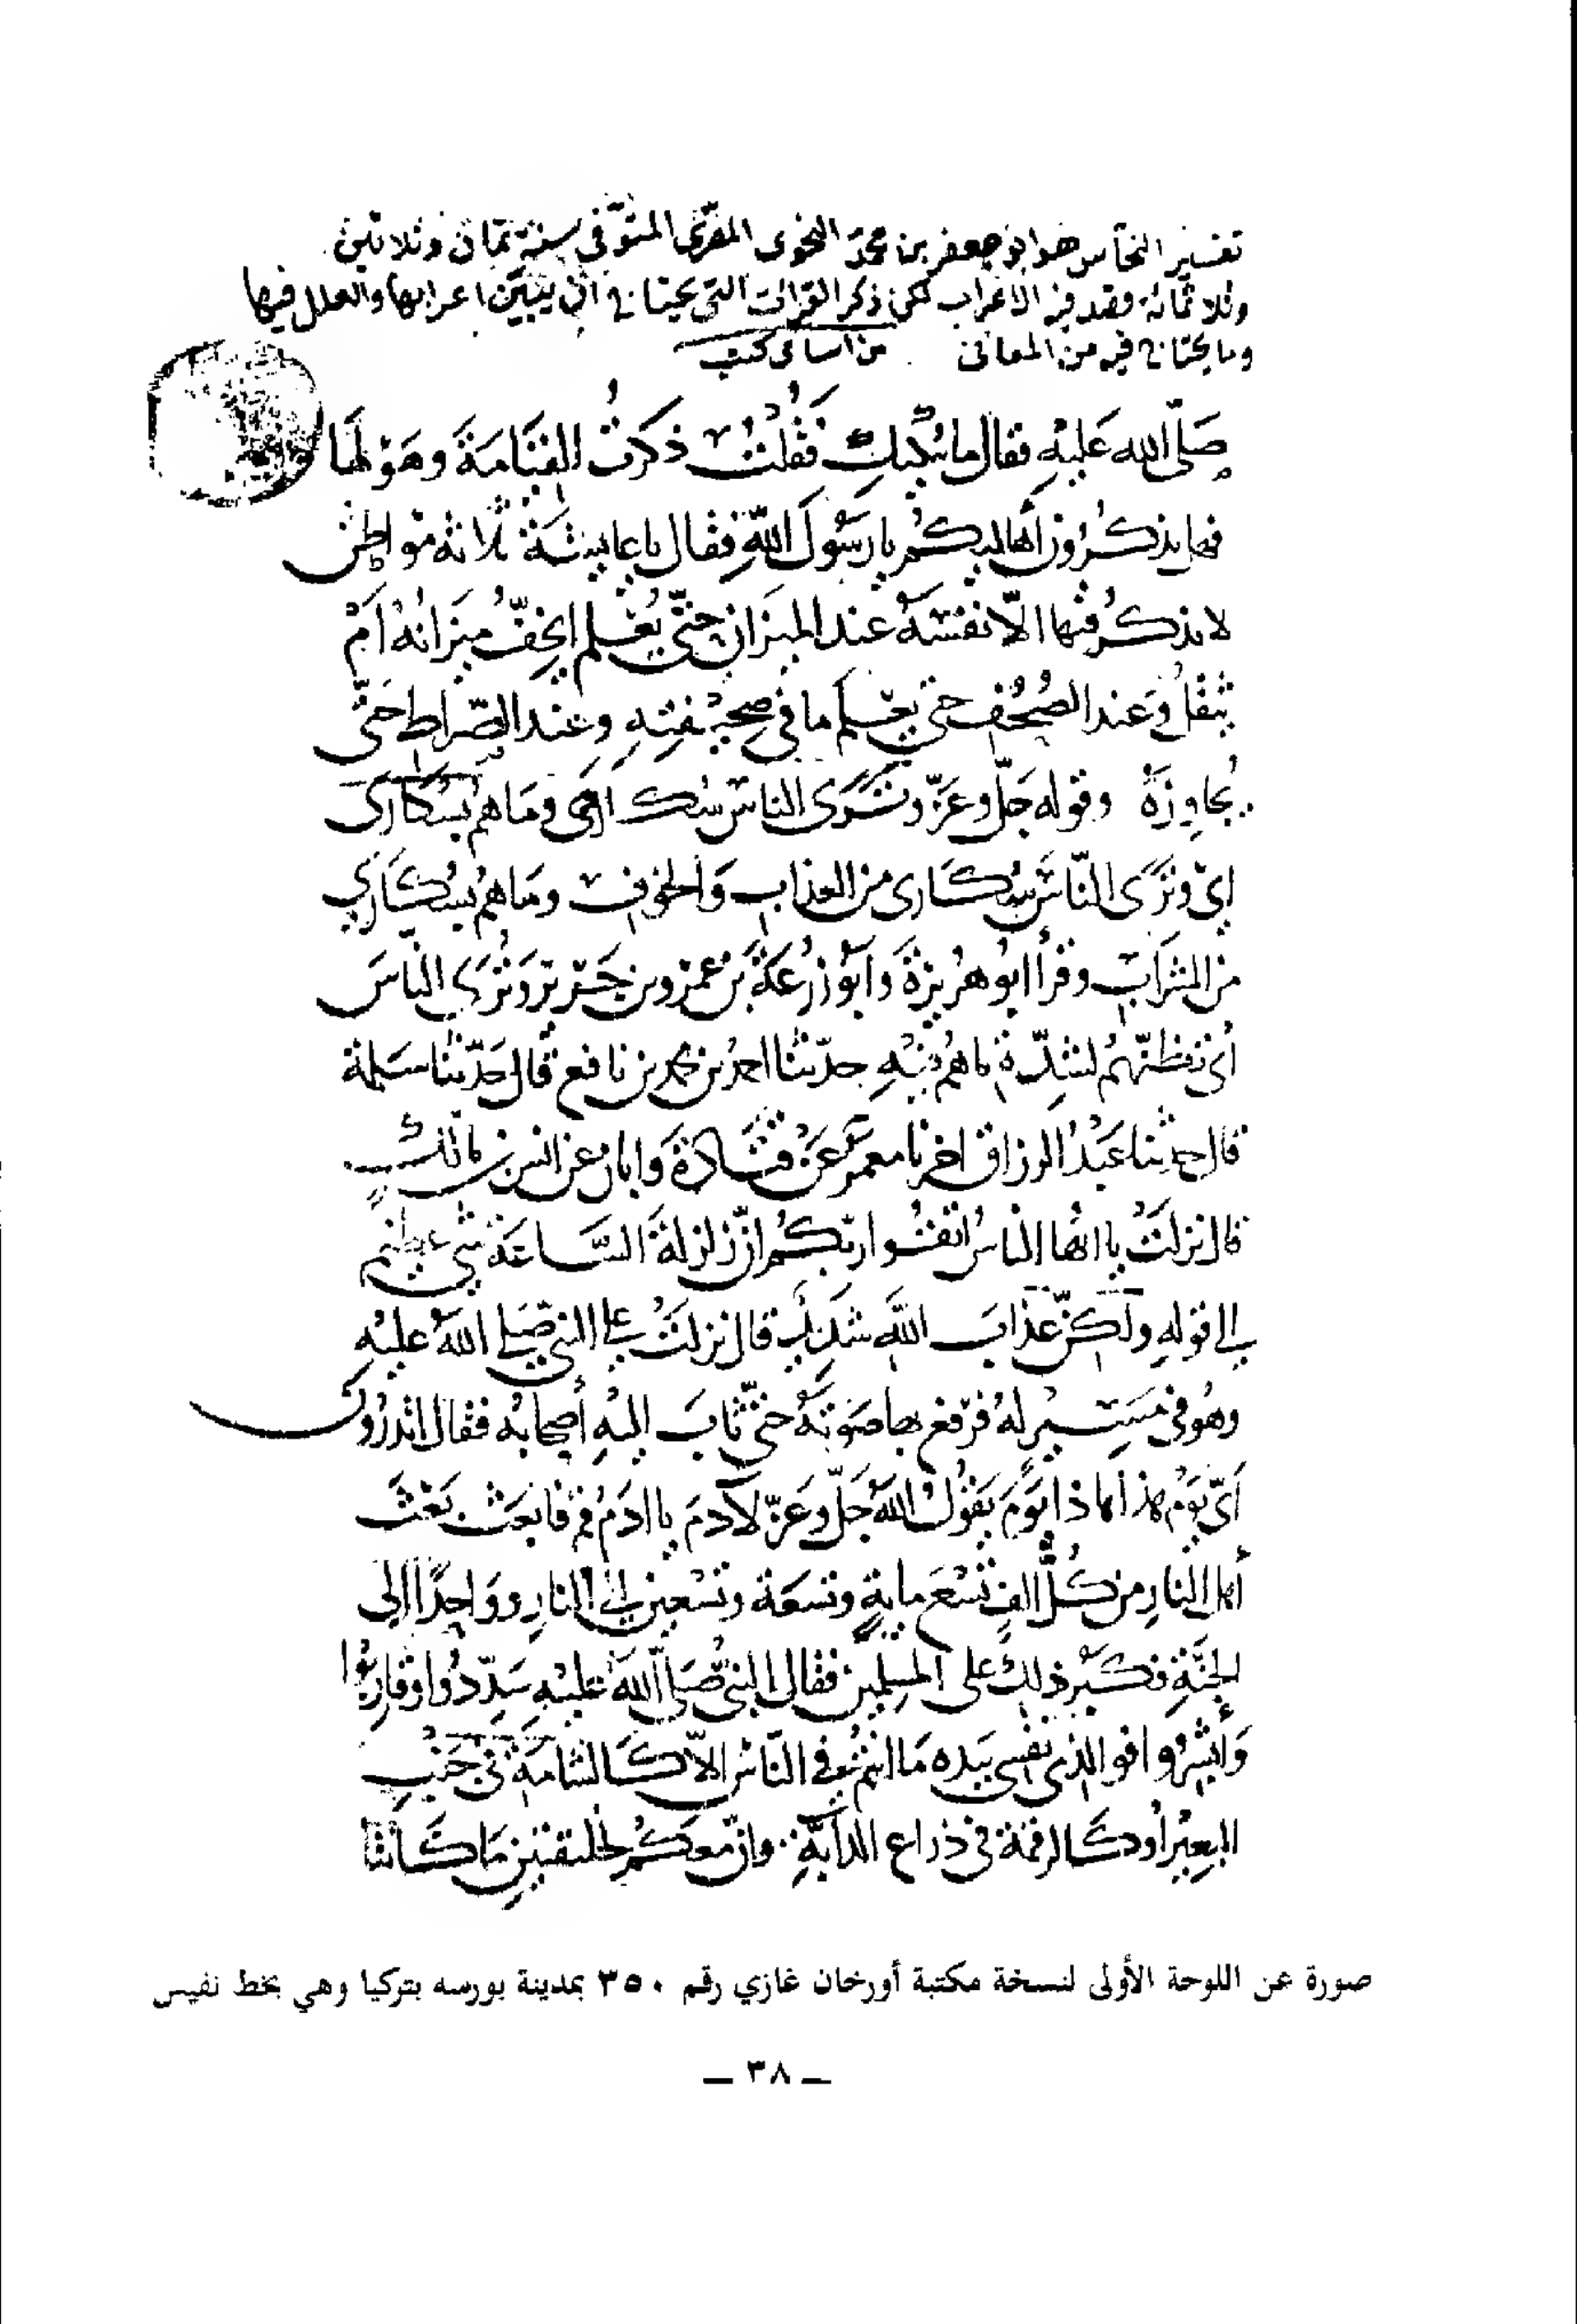 تفسير النحاس هو ابو جعفر بن محمد النحوى المقرى المتوفى سنة ثمان وثلاثين
وثلاثمائة وقصد فيه الاعراب لكن ذكر القراات التى يحتاج ان يبين اعرابها والعلل فيها
وما يحتاج فيه من المعانى من اسامى كتب
صَلّى الله عَليْهِ فقال ما يُبْكيكِ فَقُلْتُ ذكرتُ القِيَامَةَ وهَوْلَهَا
فهل يذكُرُونَ أهاليكُم يا رَسُولَ اللهِ فقال يا عايِشَة ثلاثة مَواطِن
لا يذكُر فيها الّا نفسَهُ عند الميزان حتّى يُعْلم ايخِفُّ ميزانُهُ اَمْ
يثقُلُ وَعند الصُحُفِ حتى يَعْلَم ما في صحيْفتِهِ وعِند الصّراط حَتّى
يُجاوِزَهُ وقوله جَلّ وعَزّ وتَرَى الناسَ سُكارَى ومَا هُم بسُكَارَى
اي وتَرَى النّاسَ سُكَارى من العذابِ وَالخوفِ ومَا هُم بسُكَارَي
من الشرَابِ وقرأ ابُو هُريرَةَ وَابَو زُرعَةَ بنُ عمْرو بن جَرِير وَتُرَى الناسَ
أي تظنّهُم لشِدّةِ ما هُم فيْهِ حدّثنا احمدُ بن محمد بن نافع قال حَدّثنا سَلمة
قال حدثنا عَبْدُ الرزاق اخبرنا معمَرٌ عَنْ قَتَادَةَ وَابان عن انس بن مالكٍ
قال نزلَتْ يا ايُّها الناسُ اتقُوا ربّكُم انّ زلزلةَ السَّاعَة شَيٌ عظيم
الى قولهِ ولكنّ عَذابَ اللهِ شَدِيدٌ قال نزلَتْ على النبي صَلى اللهُ عليْهِ
وهُو في مَسِيرٍ لهُ فرَفع بها صَوتَهُ حتّى ثابَ إليْهِ أصحابُه فقال اتدرُونَ
اَيّ يَوْم هذا هذا يَوْمَ يَقُولُ اللهُ جَلّ وعَزّ لآدَمَ يا ادَمُ قم فابعَثْ بَعْثَ
أهل النارِ من كُلّ الفٍ تسْعَ مايةٍ وتسعَة وتسْعين الى النارِ ووَاحِدًا الى
الجنّةِ فكبُرَ ذلِكَ على المُسلِمينَ فقال النبيُّ صَلّى اللهُ عليْهِ سَدِّدُوا وقارِبُوا
وَأبْشِرُوا فوالذي نفسِي بيَده مَا انتم في النّاسِ الّا كَالشامَةِ في جَنْبِ
البعِيْرِ أو كَالرقمة في ذراع الدابّةِ وانّ معكُم لخليقتينِ مَا كَانَتا
صورة عن اللوحة الأولى لنسخة مكتبة أورخان غازي رقم ٣٥٠ بمدينة بورسه بتركيا وهي بخط نفيس
— ٣٨ —